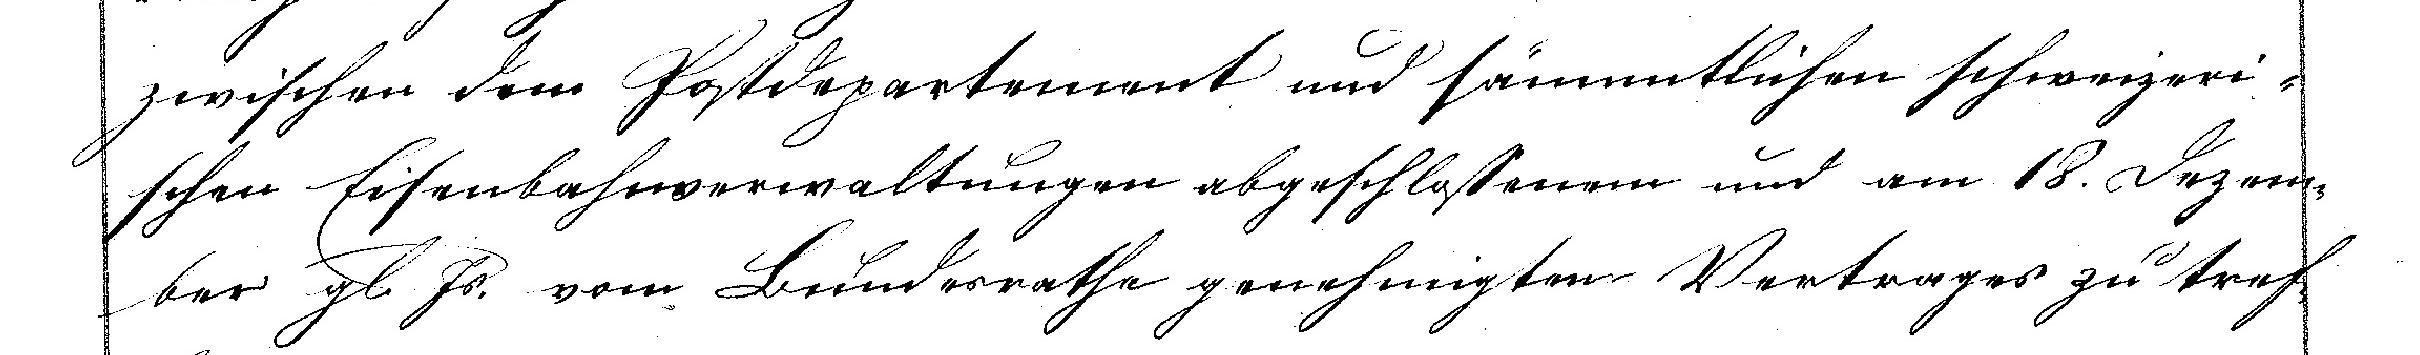 zwischen dem Postdepartement und sämmtlichen schweizeri-
schen Eisenbahnverwaltungen abgeschlossenem und am 18. Dezem-
ber gl. Js. vom Bundesrathe genehmigten Vertrages zu tref-